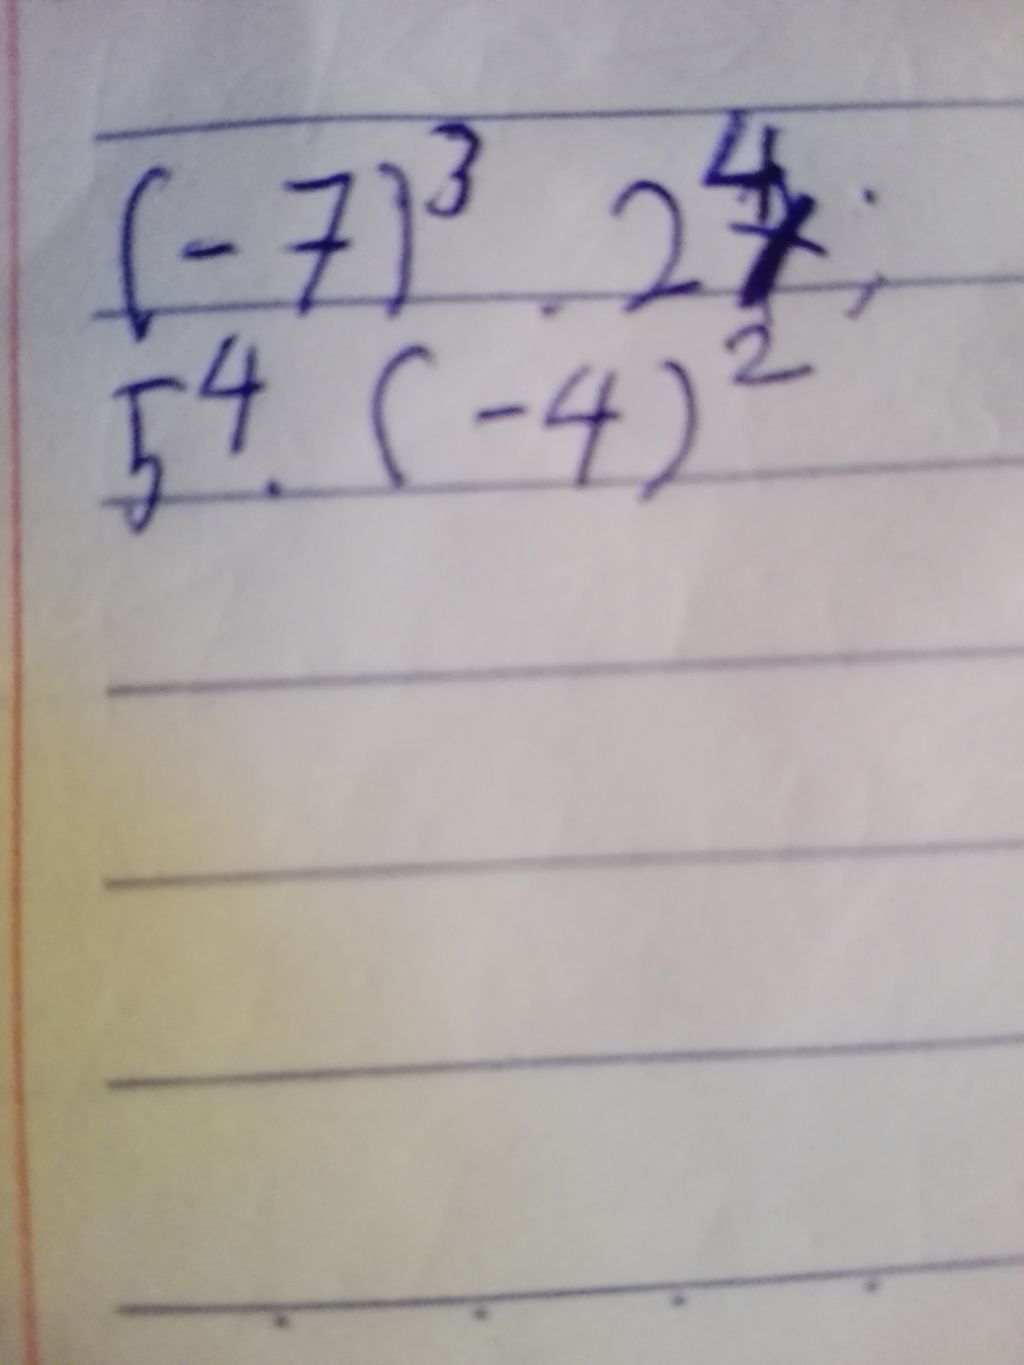 (-7)³ . 2⁴ ;
5⁴ . (-4)²